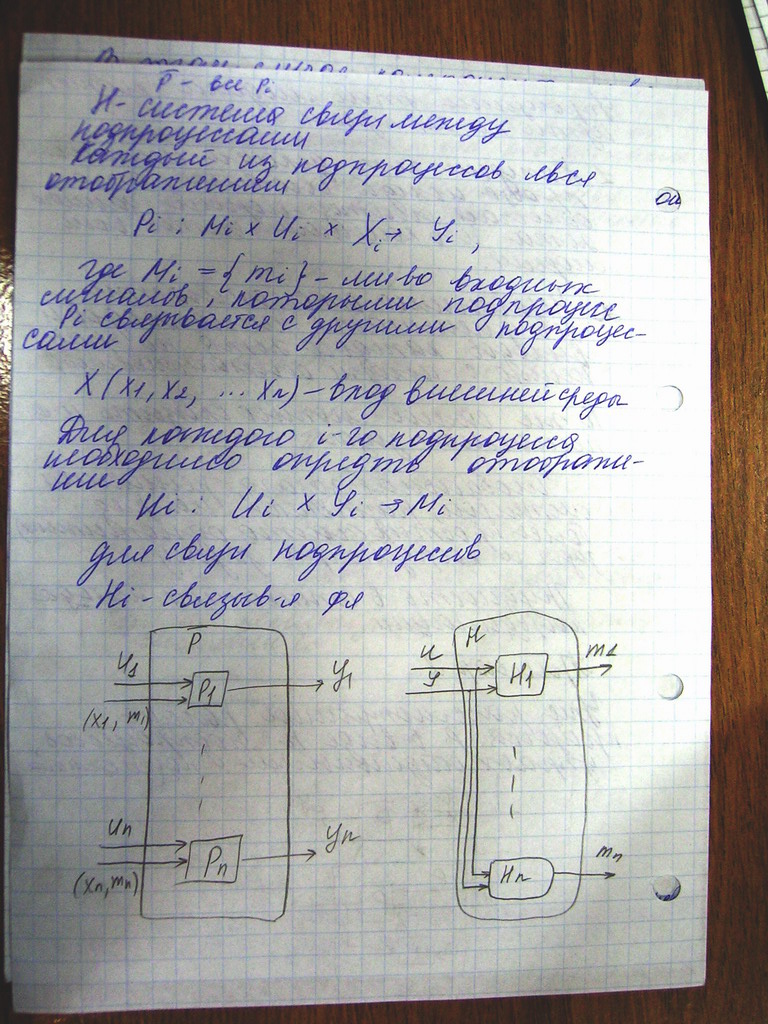 P̄ - все Pi
H - система связи между
подпроцессами
Каждый из подпроцессов явся
отображением
Pi : Mi x Ui x Xi → Yi ,
где Mi = { mi } - мн-во входных
сигналов, которыми подпроцесс
Pi связывается с другими подпроцес-
сами
X (x1, x2, ... xn) - вход внешней среды
Для каждого i-го подпроцесса
необходимо опредть отображе-
ние
Hi : Ui x Yi → Mi
для связи подпроцессов
Hi - связыв-я фя
P
U1
P1
y1
(x1, m1)
Un
Pn
yn
(xn, mn)
H
u
y
H1
m1
Hn
mn